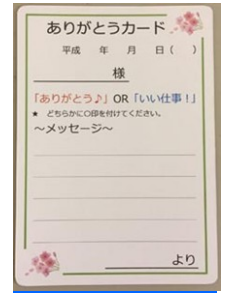 ありがとうカード
平成 年 月 日( )
様
「ありがとう♪」OR「いい仕事!」
★ どちらかに○印を付けてください。
~メッセージ~
より